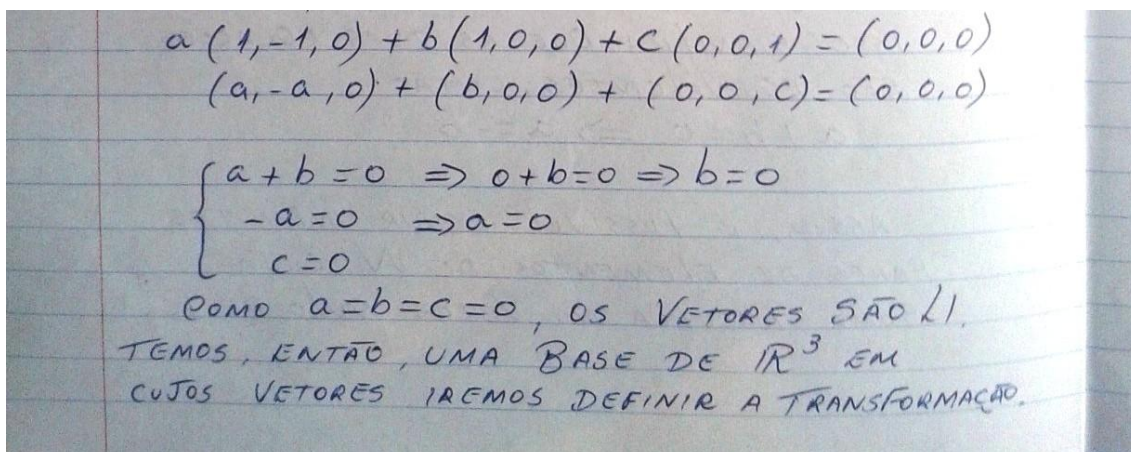 a (1,-1,0) + b (1,0,0) + c (0,0,1) = (0,0,0)
(a,-a,0) + (b,0,0) + (0,0,c) = (0,0,0)
a + b = 0 ⇒ 0 + b = 0 ⇒ b = 0
-a = 0 ⇒ a = 0
c = 0
COMO a = b = c = 0, OS VETORES SÃO LI.
TEMOS, ENTÃO, UMA BASE DE ℝ³ EM
CUJOS VETORES IREMOS DEFINIR A TRANSFORMAÇÃO.